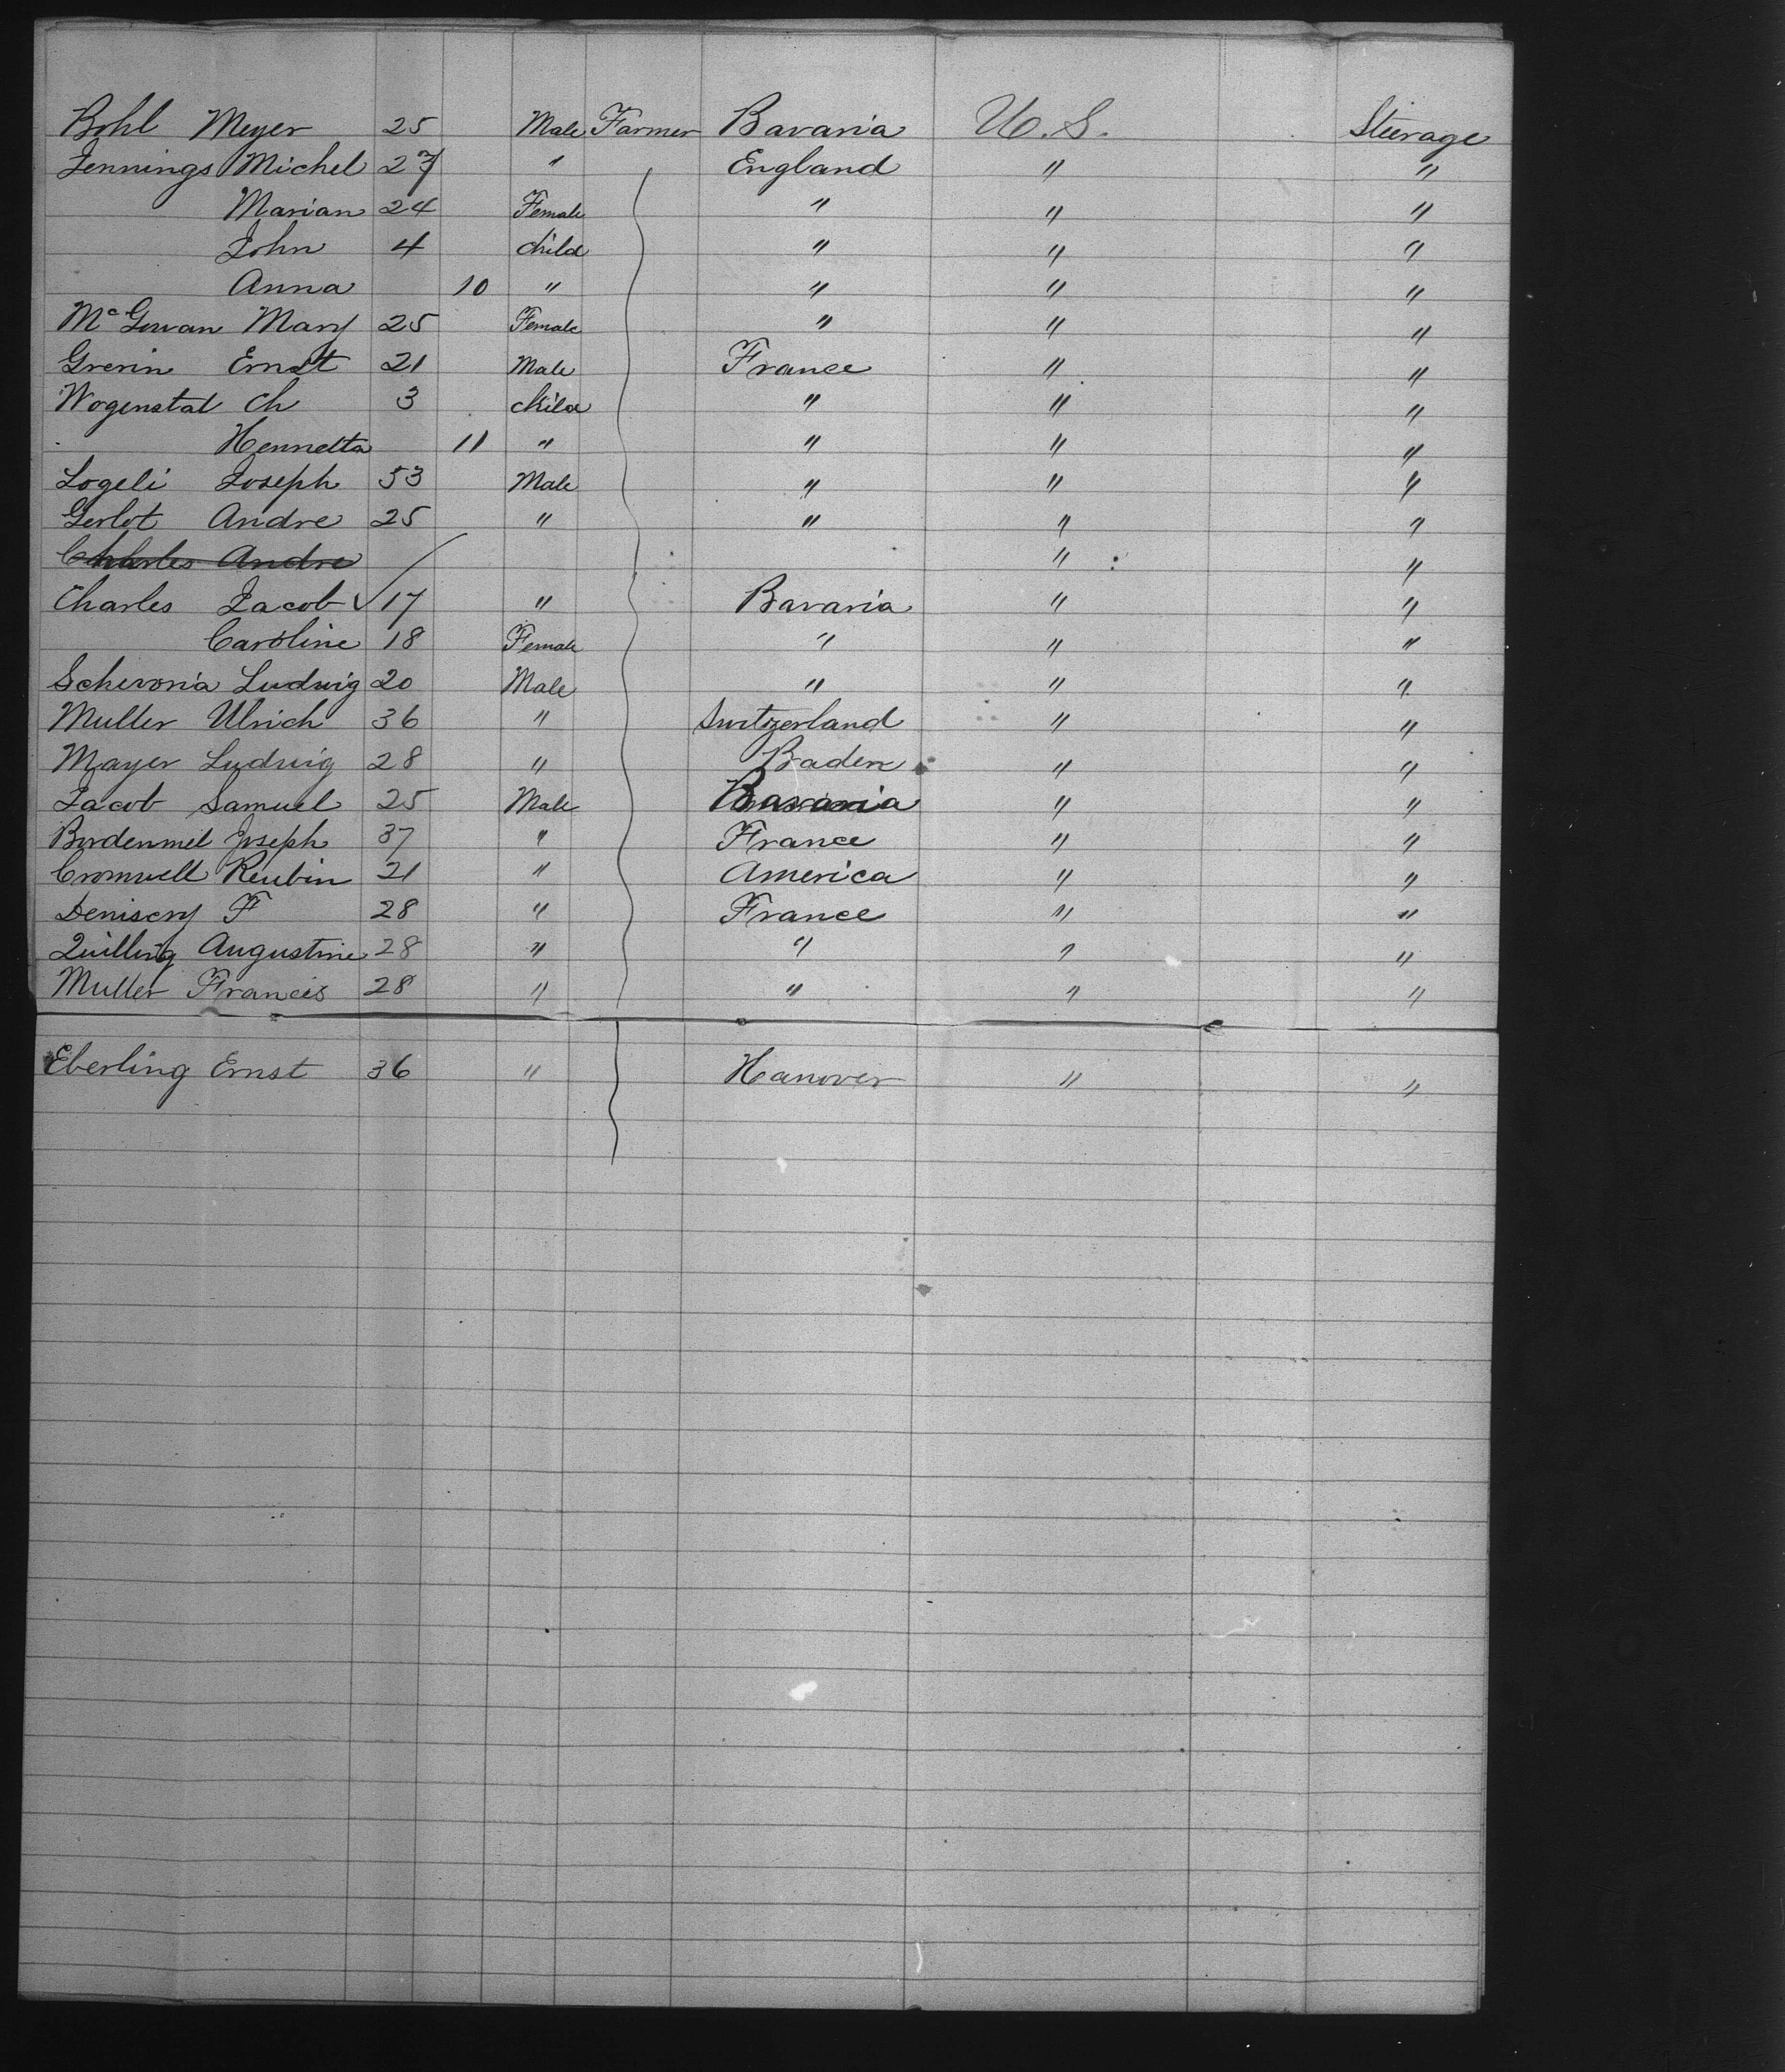 Bohl Meyer 25 Male Farmer Bavaria U.S. Steerage
Jennings Michel 27 " England " "
Marian 24 Female " " "
John 4 child " " "
Anna 10 " " " "
McGowan Mary 25 Female " " "
Grerin Ernst 21 Male France " "
Wogenstal Ch 3 child " " "
Hennetta 11 " " " "
Logeli Joseph 53 Male " " "
Gerlot Andre 25 " " " "
Charles Andre " "
Charles Jacob 17 " Bavaria " "
Caroline 18 Female " " "
Scheronia Ludwig 20 Male " " "
Muller Ulrich 36 " Switzerland " "
Mayer Ludwig 28 " Baden " "
Jacob Samuel 25 Male Bavaria " "
Bordenmel Joseph 37 " France " "
Cromwell Reubin 21 " America " "
Deniscry F 28 " France " "
Quilling Augustine 28 " " " "
Muller Francis 28 " " " "
Eberling Ernst 36 " Hanover " "